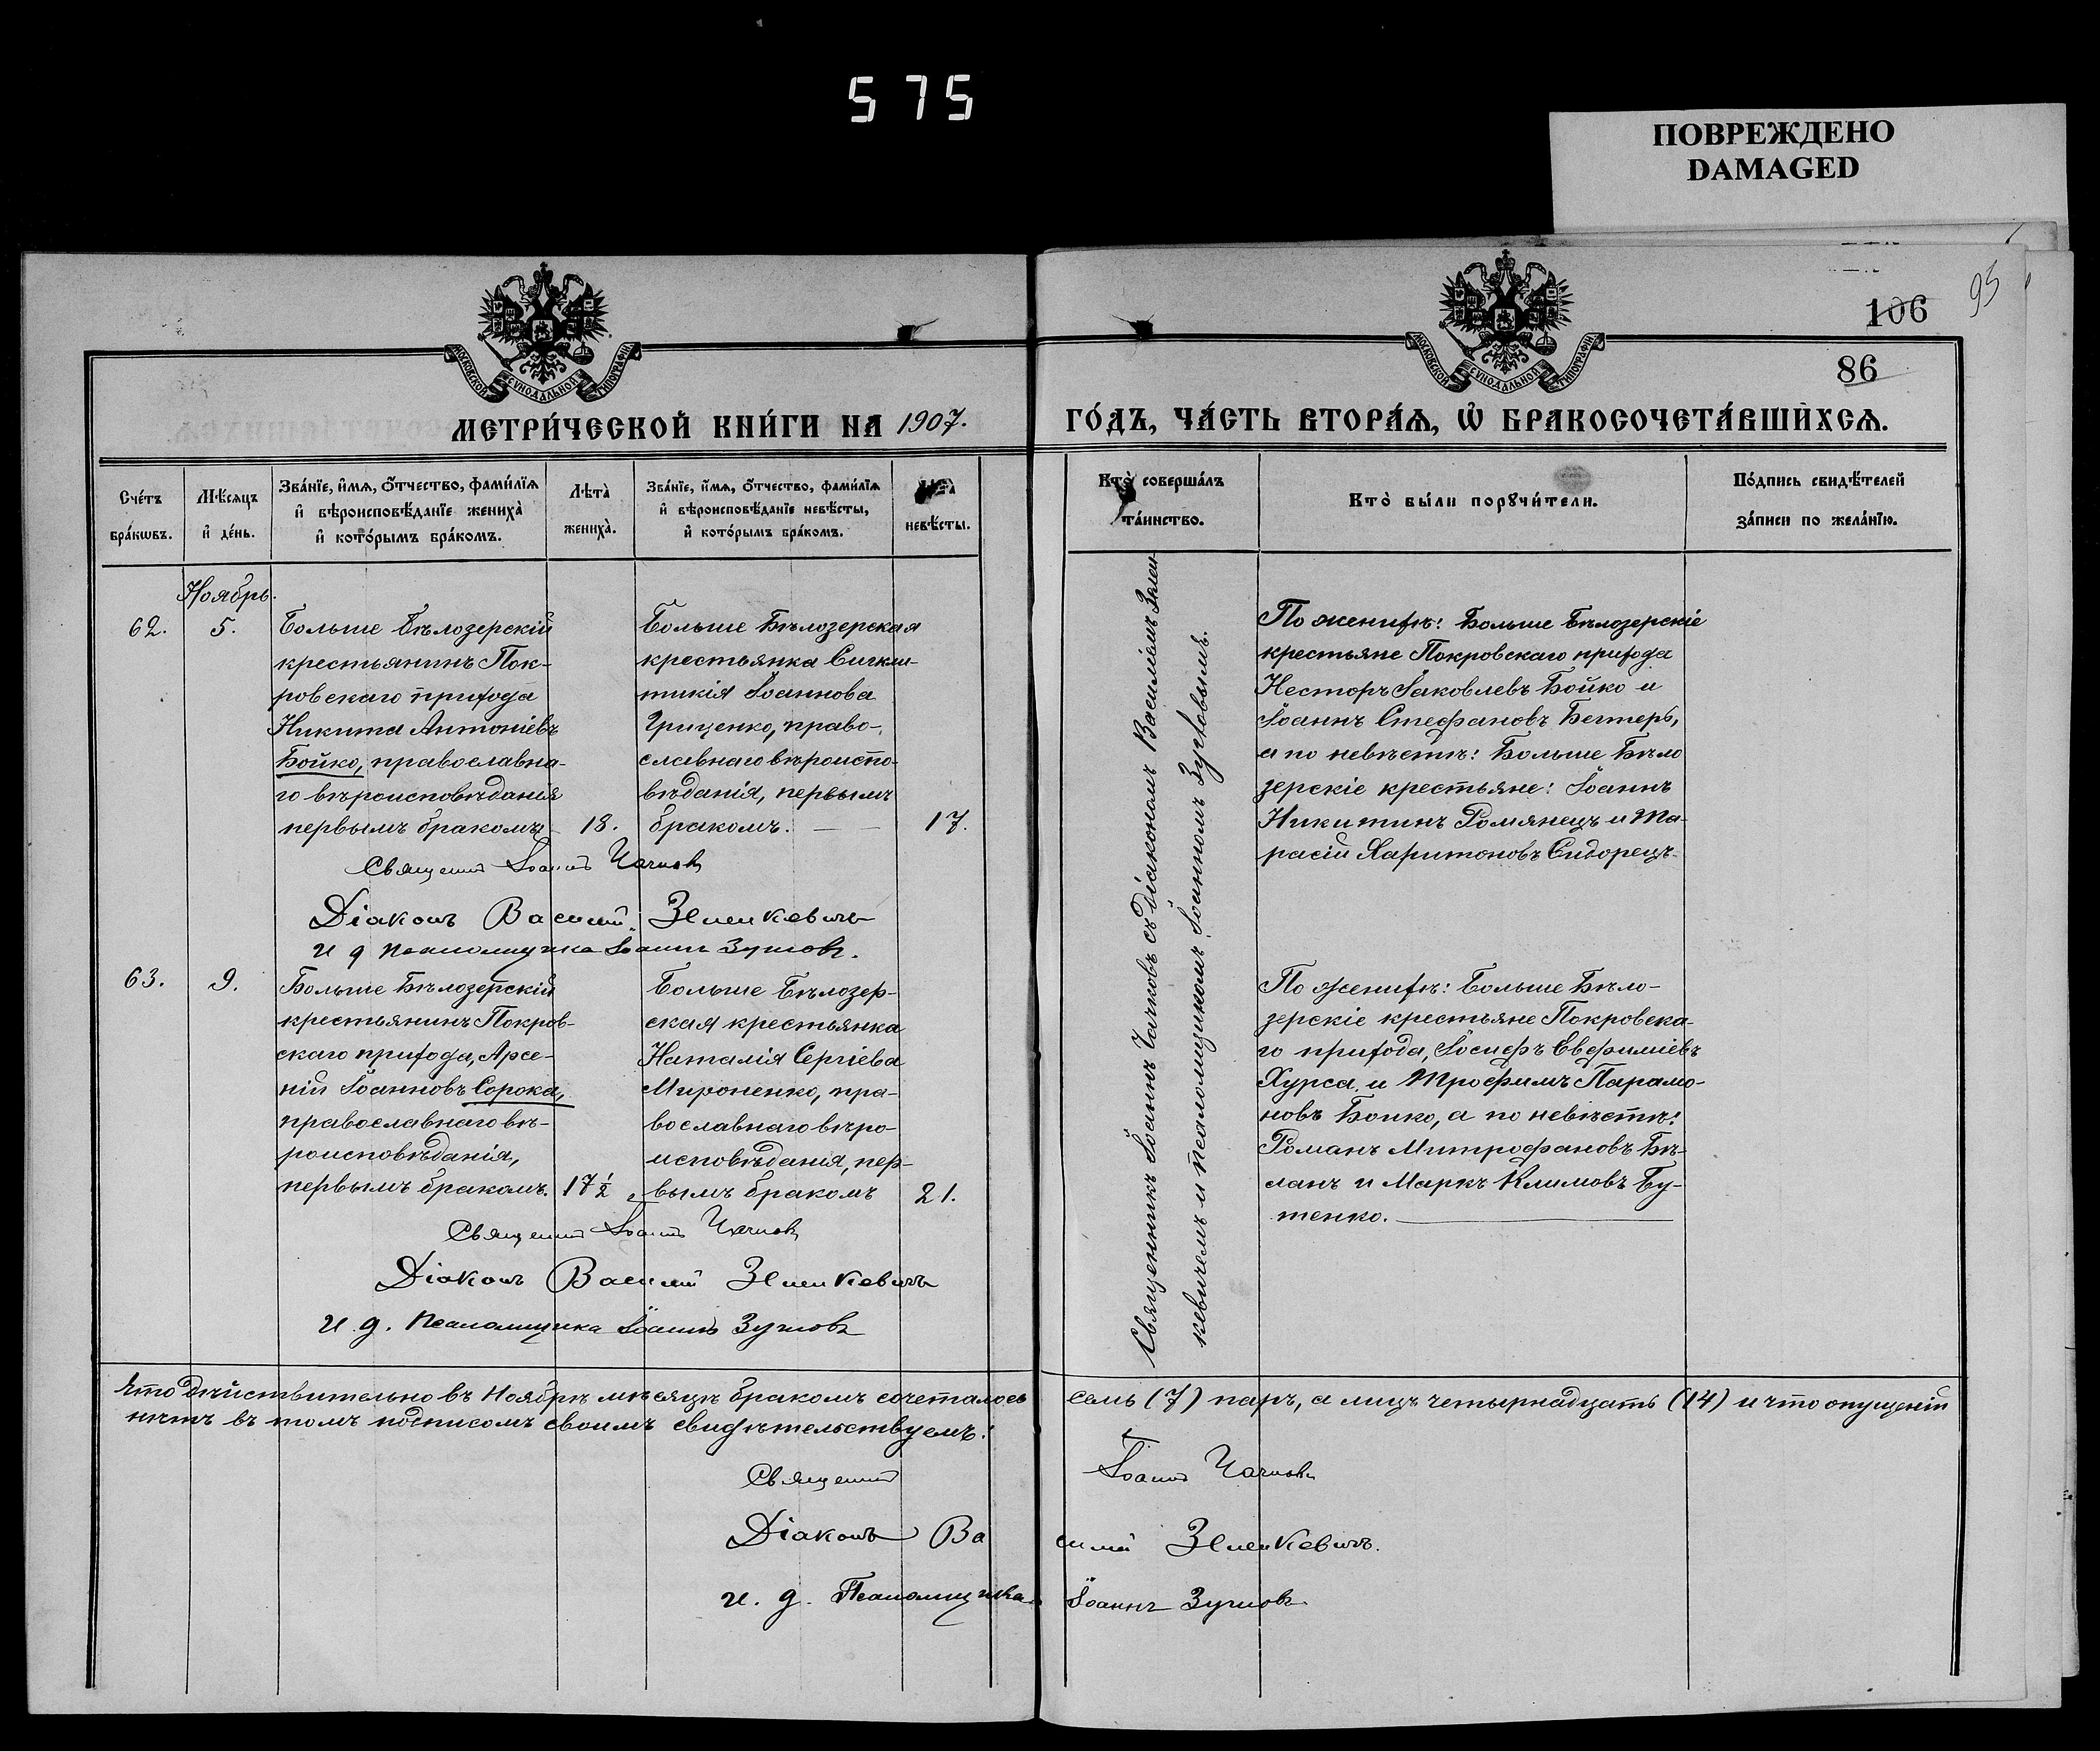 575
ПОВРЕЖДЕНО
DAMAGED
93
106
86
МОСКОВСКОЙ СУНОДАЛЬНОЙ ТИПОГРАФІИ
МОСКОВСКОЙ СУНОДАЛЬНОЙ ТИПОГРАФІИ
МЕТРИ́ЧЕСКОЙ КНИ́ГИ НА 1907.
ГО́ДЪ, ЧА́СТЬ ВТОРА́Ѧ, Ѡ҆ БРАКОСОЧЕТА́ВШИХСѦ.
Сче́тъ
бра́кѡвъ.
Мѣ́сяцъ
и҆ де́нь.
Зва́нїе, и҆́мѧ, ѻ҆́тчество, фами́лїѧ
и҆ вѣроисповѣ́данїе жениха̀
и҆ кото́рымъ бра́комъ.
Лѣта̀
жениха̀.
Зва́нїе, и҆́мѧ, ѻ҆́тчество, фами́лїѧ
и҆ вѣроисповѣ́данїе невѣ́сты,
и҆ кото́рымъ бра́комъ.
невѣ́сты.
Кто̀ соверша́лъ
та́инство.
Кто̀ бы́ли порꙋчи́тели.
По́дпись свидѣ́телей
за́писи по жела́нїю.
Ноябрь.
62.
5.
Больше Бѣлозерскій
крестьянинъ Пок-
ровскаго прихода
Никита Антоніевъ
Бойко, православна-
го вѣроисповѣданія
первымъ бракомъ
18.
Больше Бѣлозерская
крестьянка Сигкли-
тикія Іоаннова
Гриценко, право-
славнаго вѣроиспо-
вѣданія, первымъ
бракомъ.
17.
Священникъ Іоаннъ Чачковъ съ діакономъ Василіемъ Зелен
кевичемъ и псаломщикомъ Іоанномъ Зучковымъ.
По женихѣ: Больше Бѣлозерскіе
крестьяне Покровскаго прихода
Несторъ Іаковлевъ Бойко и
Іоаннъ Стефановъ Бехтеръ,
а по невѣстѣ: Больше Бѣло
зерскіе крестьяне: Іоаннъ
Никитинъ Романецъ и Та-
расій Харитоновъ Сидорецъ.
Священникъ Іоаннъ Чачковъ
Діаконъ Василій Зеленкевичъ
И д псаломщика Іоаннъ Зучковъ.
63.
9.
Больше Бѣлозерскій
крестьянинъ Покров-
скаго прихода, Арсе-
ній Іоанновъ Сорока,
православнаго вѣ-
роисповѣданія,
первымъ бракомъ.
17½
Больше Бѣлозер-
ская крестьянка
Наталія Сергіева
Мироненко, пра-
вославнаго вѣро-
исповѣданія, пер-
вымъ бракомъ
21.
По женихѣ: Больше Бѣло-
зерскіе крестьяне Покровска-
го прихода, Іосифъ Евфиміевъ
Хурса и Трофимъ Парамо-
новъ Бойко, а по невѣстѣ:
Романъ Митрофановъ Бѣ-
ланъ и Маркъ Климовъ Бу-
тенко.
Священникъ Іоаннъ Чачковъ
Діаконъ Василій Зеленкевичъ
И. д. псаломщика Іоаннъ Зучковъ
Что дѣйствительно въ Ноябрѣ мѣсяцѣ бракомъ сочеталось семь (7) паръ, а лицъ четырнадцать (14) и что опущеній
нѣтъ въ томъ подписомъ своимъ свидѣтельствуемъ:
Священникъ Іоаннъ Чачковъ
Діаконъ Василій Зеленкевичъ.
И. д. Псаломщика Іоаннъ Зучковъ